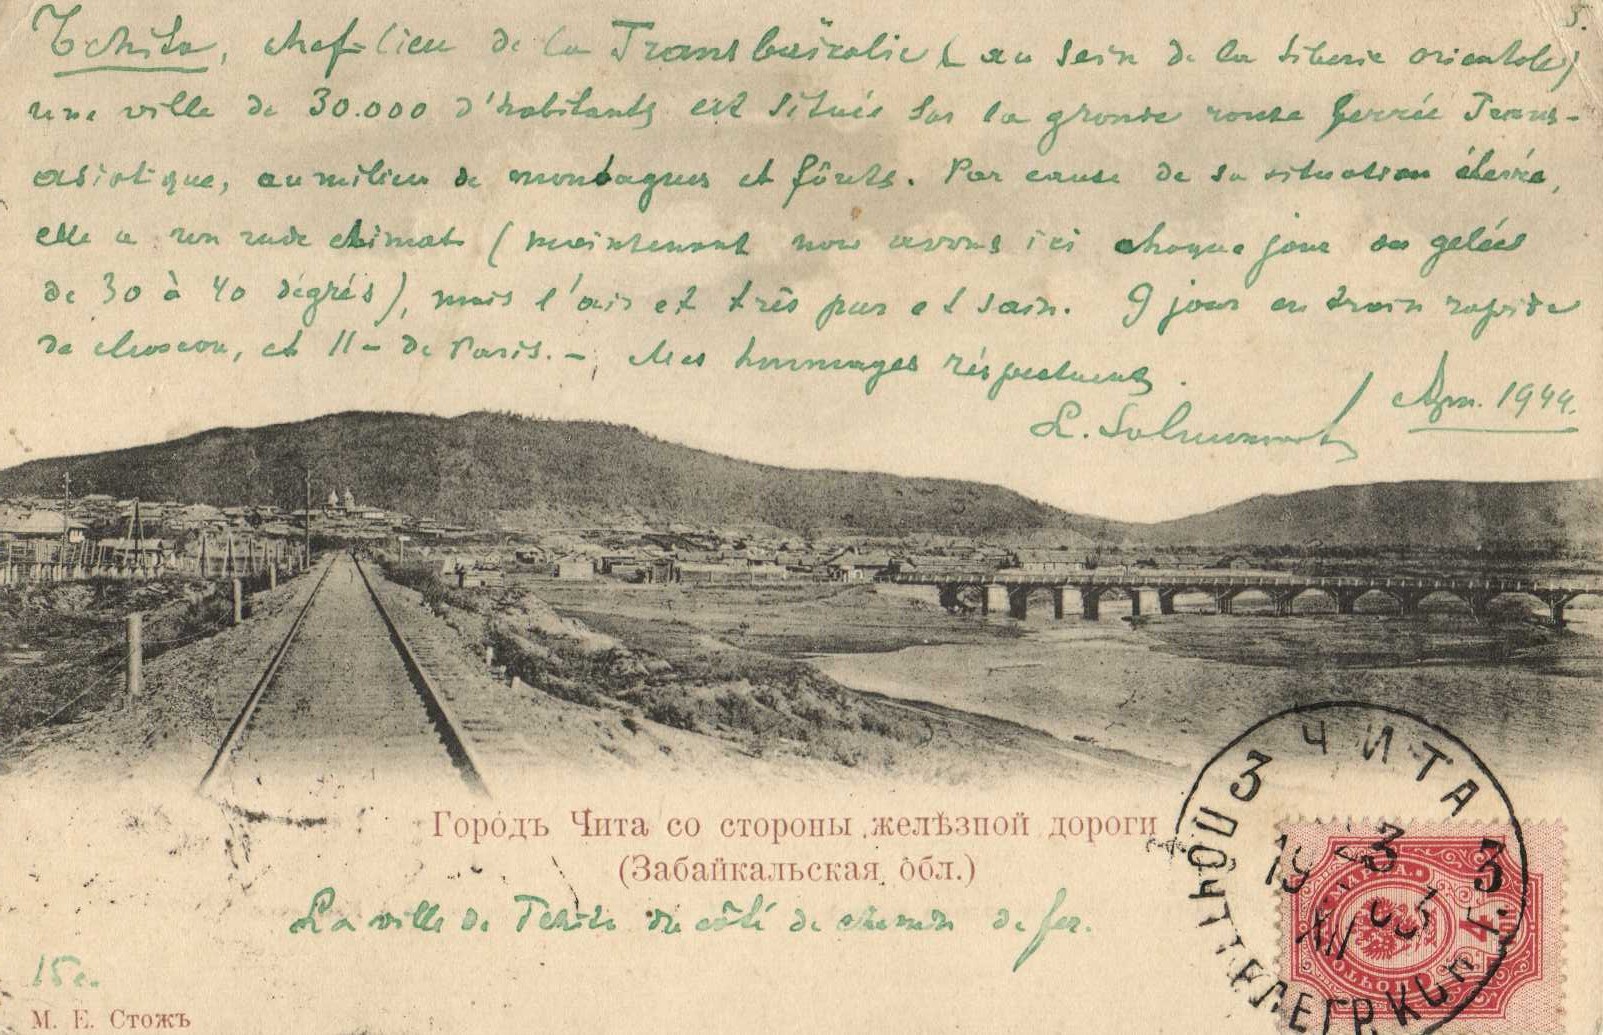 5.
Tchita, chef-lieu de la Transbaïkalie (au sein de la Siberie orientale)
une ville de 30.000 d'habitants est située sur la grande route ferrée Trans-
asiatique, au milieu de montagnes et fôrets. Par cause de sa situation élevée,
elle a un rude climat (maintenant nous avons ici chaque jour des gelées
de 30 à 40 dégrés), mais l'air est très pur et sain. 9 jour en train rapide
de Moscou, et 11 - de Paris. - Mes hommages réspectueux.
1944.
Городъ Чита со стороны желѣзной дороги
(Забайкальская обл.)
La ville de Tchita du côté de chemin de fer.
15 c.
М. Е. Стожъ
ЧИТА
3 3
19 3
XII 03
ПОЧТ ТЕЛЕГР К